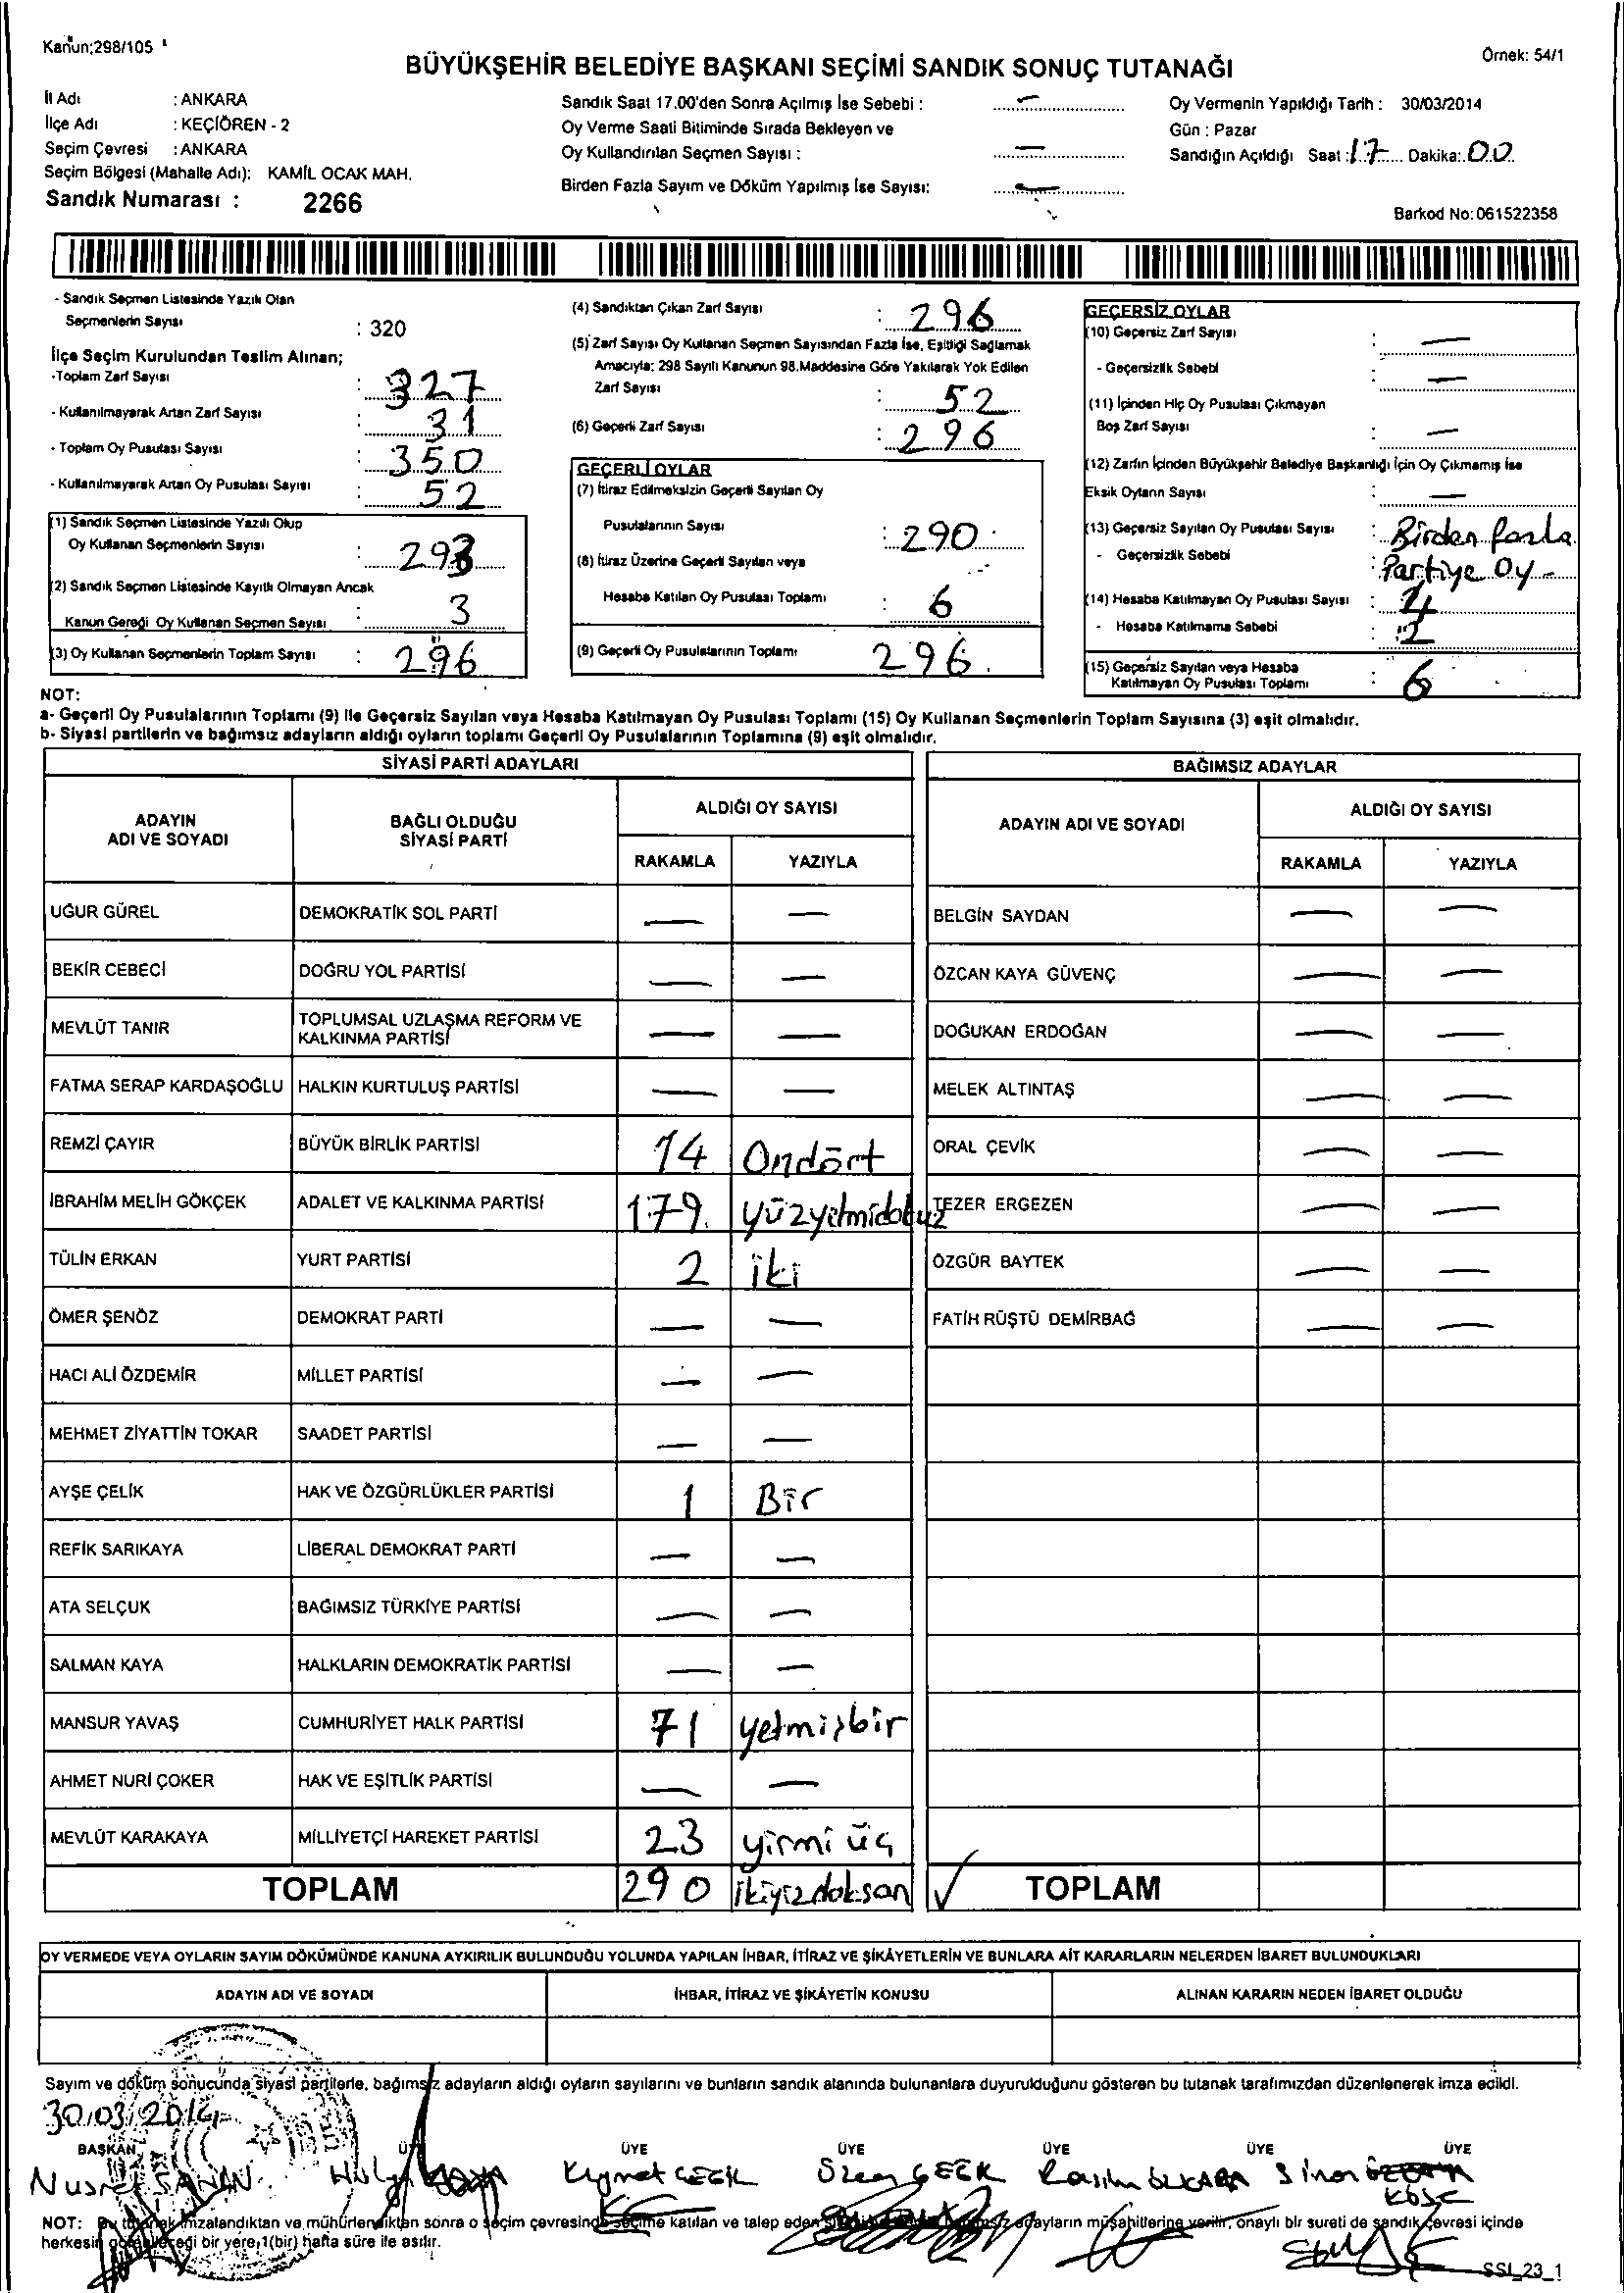 Kanun;298/105
Örnek: 54/1
BÜYÜKŞEHİR BELEDİYE BAŞKANI SEÇİMİ SANDIK SONUÇ TUTANAĞI
İl Adı : ANKARA
İlçe Adı : KEÇİÖREN - 2
Seçim Çevresi : ANKARA
Seçim Bölgesi (Mahalle Adı): KAMİL OCAK MAH.
Sandık Numarası : 2266
Sandık Saat 17.00'den Sonra Açılmış İse Sebebi : —
Oy Verme Saati Bitiminde Sırada Bekleyen ve
Oy Kullandırılan Seçmen Sayısı : —
Birden Fazla Sayım ve Döküm Yapılmış İse Sayısı: —
Oy Vermenin Yapıldığı Tarih : 30/03/2014
Gün : Pazar
Sandığın Açıldığı Saat : 17 Dakika: 00
Barkod No: 061522358
- Sandık Seçmen Listesinde Yazılı Olan
Seçmenlerin Sayısı : 320
İlçe Seçim Kurulundan Teslim Alınan;
-Toplam Zarf Sayısı : 327
- Kullanılmayarak Artan Zarf Sayısı : 31
- Toplam Oy Pusulası Sayısı : 350
- Kullanılmayarak Artan Oy Pusulası Sayısı : 52
(1) Sandık Seçmen Listesinde Yazılı Olup
Oy Kullanan Seçmenlerin Sayısı : 293
(2) Sandık Seçmen Listesinde Kayıtlı Olmayan Ancak
Kanun Gereği Oy Kullanan Seçmen Sayısı : 3
(3) Oy Kullanan Seçmenlerin Toplam Sayısı : 296
(4) Sandıktan Çıkan Zarf Sayısı : 296
(5) Zarf Sayısı Oy Kullanan Seçmen Sayısından Fazla İse, Eşitliği Sağlamak
Amacıyla; 298 Sayılı Kanunun 98.Maddesine Göre Yakılarak Yok Edilen
Zarf Sayısı : 52
(6) Geçerli Zarf Sayısı : 296
GEÇERLİ OYLAR
(7) İtiraz Edilmeksizin Geçerli Sayılan Oy
Pusulalarının Sayısı : 290
(8) İtiraz Üzerine Geçerli Sayılan veya
Hesaba Katılan Oy Pusulası Toplamı : 6
(9) Geçerli Oy Pusulalarının Toplamı 296
GEÇERSİZ OYLAR
(10) Geçersiz Zarf Sayısı : —
- Geçersizlik Sebebi : —
(11) İçinden Hiç Oy Pusulası Çıkmayan
Boş Zarf Sayısı : —
(12) Zarfın İçinden Büyükşehir Belediye Başkanlığı İçin Oy Çıkmamış İse
Eksik Oyların Sayısı : —
(13) Geçersiz Sayılan Oy Pusulası Sayısı : Birden fazla
- Geçersizlik Sebebi : Partiye Oy -
(14) Hesaba Katılmayan Oy Pusulası Sayısı : 4
- Hesaba Katılmama Sebebi : 2
(15) Geçersiz Sayılan veya Hesaba
Katılmayan Oy Pusulası Toplamı : 6
NOT:
a- Geçerli Oy Pusulalarının Toplamı (9) ile Geçersiz Sayılan veya Hesaba Katılmayan Oy Pusulası Toplamı (15) Oy Kullanan Seçmenlerin Toplam Sayısına (3) eşit olmalıdır.
b- Siyasi partilerin ve bağımsız adayların aldığı oyların toplamı Geçerli Oy Pusulalarının Toplamına (9) eşit olmalıdır.
SİYASİ PARTİ ADAYLARI
ADAYIN ADI VE SOYADI BAĞLI OLDUĞU SİYASİ PARTİ ALDIĞI OY SAYISI
RAKAMLA YAZIYLA
UĞUR GÜREL DEMOKRATİK SOL PARTİ — —
BEKİR CEBECİ DOĞRU YOL PARTİSİ — —
MEVLÜT TANIR TOPLUMSAL UZLAŞMA REFORM VE KALKINMA PARTİSİ — —
FATMA SERAP KARDAŞOĞLU HALKIN KURTULUŞ PARTİSİ — —
REMZİ ÇAYIR BÜYÜK BİRLİK PARTİSİ 14 Ondört
İBRAHİM MELİH GÖKÇEK ADALET VE KALKINMA PARTİSİ 179 yüzyetmidokuz
TÜLİN ERKAN YURT PARTİSİ 2 iki
ÖMER ŞENÖZ DEMOKRAT PARTİ — —
HACI ALİ ÖZDEMİR MİLLET PARTİSİ — —
MEHMET ZİYATTİN TOKAR SAADET PARTİSİ — —
AYŞE ÇELİK HAK VE ÖZGÜRLÜKLER PARTİSİ 1 Bir
REFİK SARIKAYA LİBERAL DEMOKRAT PARTİ — —
ATA SELÇUK BAĞIMSIZ TÜRKİYE PARTİSİ — —
SALMAN KAYA HALKLARIN DEMOKRATİK PARTİSİ — —
MANSUR YAVAŞ CUMHURİYET HALK PARTİSİ 71 yetmişbir
AHMET NURİ ÇOKER HAK VE EŞİTLİK PARTİSİ — —
MEVLÜT KARAKAYA MİLLİYETÇİ HAREKET PARTİSİ 23 yirmi üç
TOPLAM 290 ikiyüzdoksan
BAĞIMSIZ ADAYLAR
ADAYIN ADI VE SOYADI ALDIĞI OY SAYISI
RAKAMLA YAZIYLA
BELGİN SAYDAN — —
ÖZCAN KAYA GÜVENÇ — —
DOĞUKAN ERDOĞAN — —
MELEK ALTINTAŞ — —
ORAL ÇEVİK — —
TEZER ERGEZEN — —
ÖZGÜR BAYTEK — —
FATİH RÜŞTÜ DEMİRBAĞ — —
TOPLAM
OY VERMEDE VEYA OYLARIN SAYIM DÖKÜMÜNDE KANUNA AYKIRILIK BULUNDUĞU YOLUNDA YAPILAN İHBAR, İTİRAZ VE ŞİKÂYETLERİN VE BUNLARA AİT KARARLARIN NELERDEN İBARET BULUNDUKLARI
ADAYIN ADI VE SOYADI İHBAR, İTİRAZ VE ŞİKÂYETİN KONUSU ALINAN KARARIN NEDEN İBARET OLDUĞU
Sayım ve döküm sonucunda siyasi partilerle, bağımsız adayların aldığı oyların sayılarını ve bunların sandık alanında bulunanlara duyurulduğunu gösteren bu tutanak tarafımızdan düzenlenerek imza edildi.
30.03.2014
BAŞKAN ÜYE ÜYE ÜYE ÜYE ÜYE ÜYE
Kıymet Sinan
KÖSE
NOT: Bu tutanak imzalandıktan ve mühürlendikten sonra o seçim çevresinde seçime katılan ve talep eden adayların müşahitlerine verilir, onaylı bir sureti de sandık çevresi içinde
herkesin görebileceği bir yere,1(bir) hafta süre ile asılır.
SSI_23_1